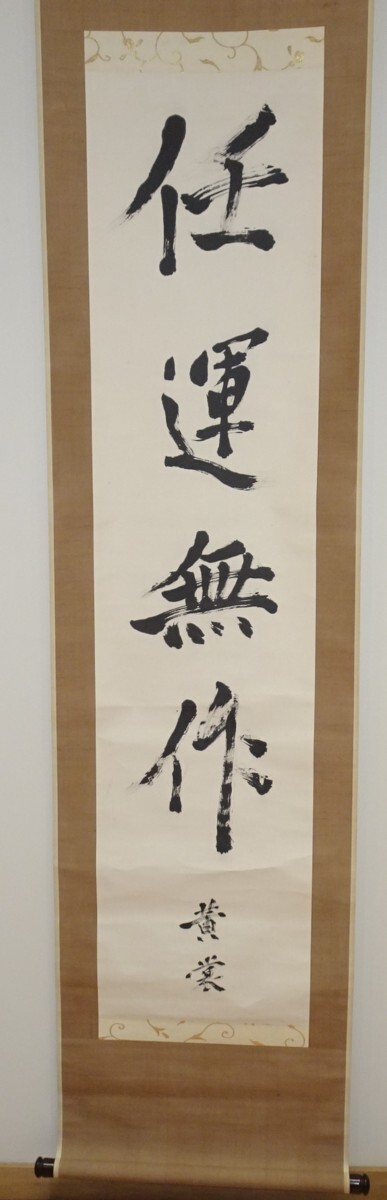 任運無作
黄裳